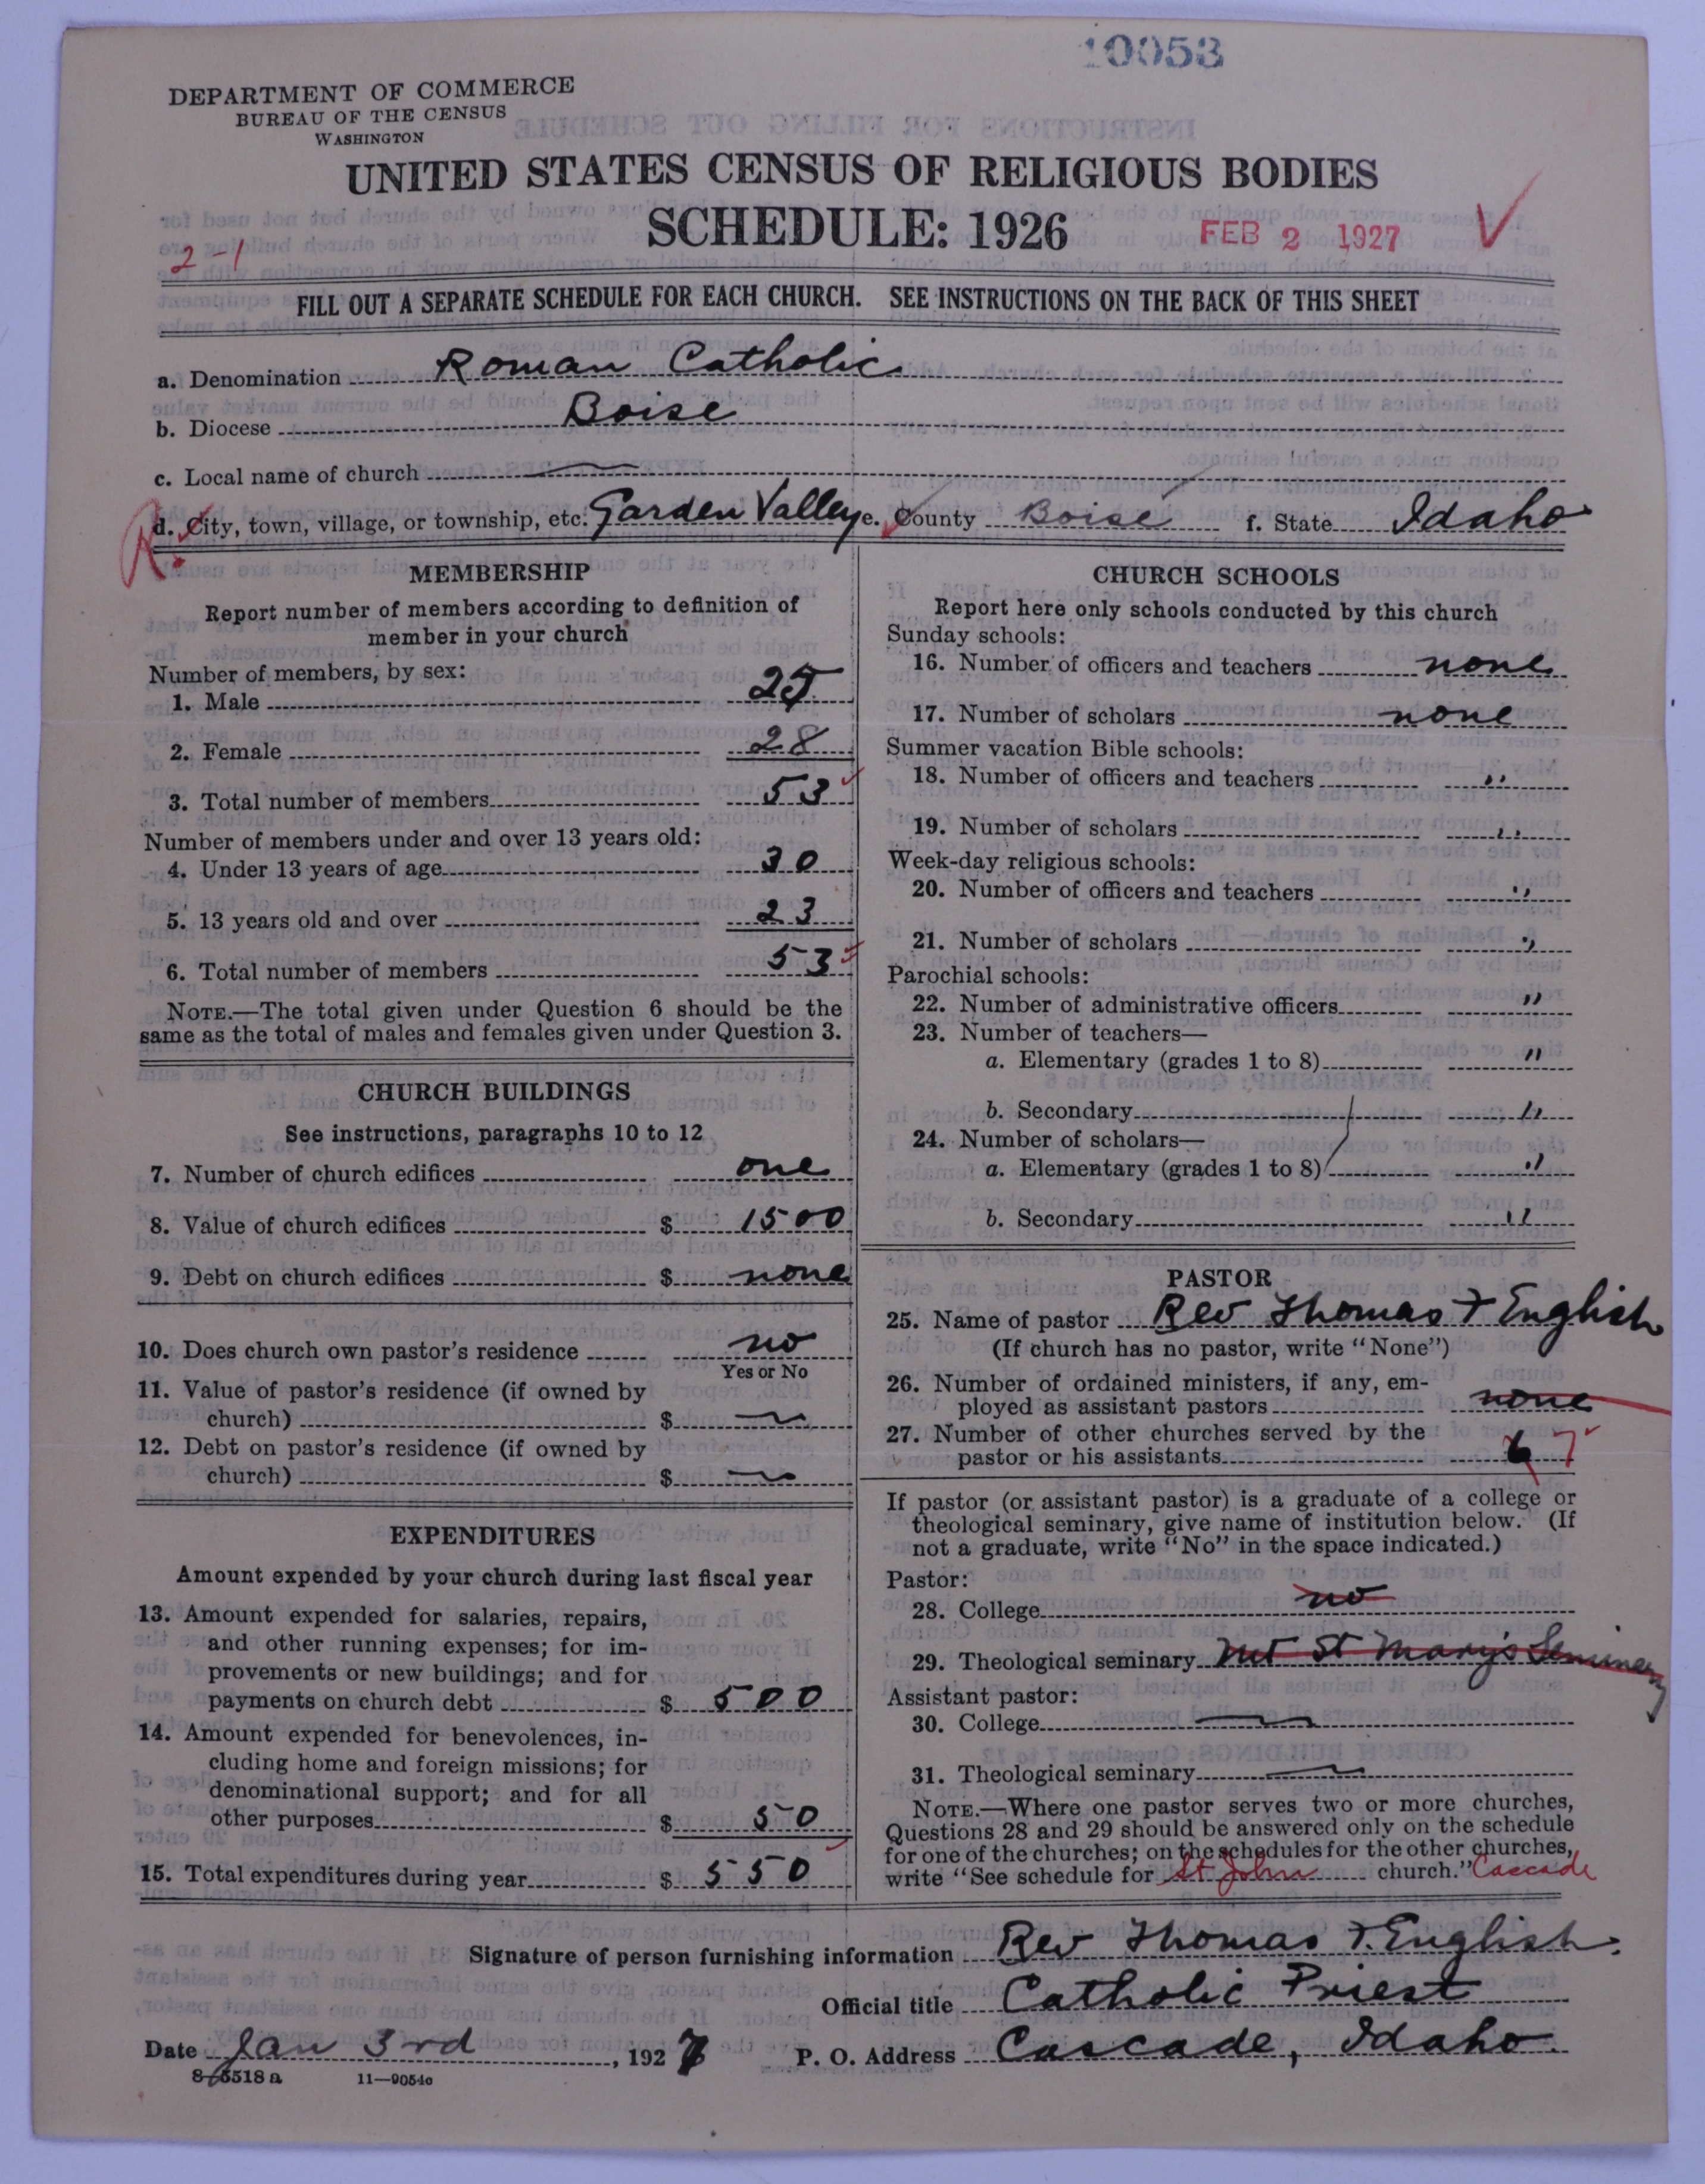 10053
DEPARTMENT OF COMMERCE
BUREAU OF THE CENSUS
WASHINGTON
UNITED STATES CENSUS OF RELIGIOUS BODIES
SCHEDULE: 1926
FEB 2 1927
2-1
FILL OUT A SEPARATE SCHEDULE FOR EACH CHURCH. SEE INSTRUCTIONS ON THE BACK OF THIS SHEET
a. Denomination Roman Catholic
b. Diocese Boise
c. Local name of church
R. d. City, town, village, or township, etc. Garden Valley e. County Boise f. State Idaho
MEMBERSHIP
Report number of members according to definition of
member in your church
Number of members, by sex:
1. Male 25
2. Female 28
3. Total number of members 53
Number of members under and over 13 years old:
4. Under 13 years of age 30
5. 13 years old and over 23
6. Total number of members 53
NOTE.—The total given under Question 6 should be the
same as the total of males and females given under Question 3.
CHURCH BUILDINGS
See instructions, paragraphs 10 to 12
7. Number of church edifices one
8. Value of church edifices $ 1500
9. Debt on church edifices $ none
10. Does church own pastor's residence no
Yes or No
11. Value of pastor's residence (if owned by
church) $
12. Debt on pastor's residence (if owned by
church) $
EXPENDITURES
Amount expended by your church during last fiscal year
13. Amount expended for salaries, repairs,
and other running expenses; for im-
provements or new buildings; and for
payments on church debt $ 500
14. Amount expended for benevolences, in-
cluding home and foreign missions; for
denominational support; and for all
other purposes $ 50
15. Total expenditures during year $ 550
CHURCH SCHOOLS
Report here only schools conducted by this church
Sunday schools:
16. Number of officers and teachers none
17. Number of scholars none
Summer vacation Bible schools:
18. Number of officers and teachers "
19. Number of scholars "
Week-day religious schools:
20. Number of officers and teachers "
21. Number of scholars "
Parochial schools:
22. Number of administrative officers "
23. Number of teachers—
a. Elementary (grades 1 to 8) "
b. Secondary "
24. Number of scholars—
a. Elementary (grades 1 to 8) "
b. Secondary "
PASTOR
25. Name of pastor Rev Thomas F English
(If church has no pastor, write "None")
26. Number of ordained ministers, if any, em-
ployed as assistant pastors none
27. Number of other churches served by the
pastor or his assistants 6 7
If pastor (or assistant pastor) is a graduate of a college or
theological seminary, give name of institution below. (If
not a graduate, write "No" in the space indicated.)
Pastor:
28. College no
29. Theological seminary Mt St Mary's Seminary
Assistant pastor:
30. College
31. Theological seminary
NOTE.—Where one pastor serves two or more churches,
Questions 28 and 29 should be answered only on the schedule
for one of the churches; on the schedules for the other churches,
write "See schedule for St John church." Cascade
Signature of person furnishing information Rev Thomas F. English.
Official title Catholic Priest
Date Jan 3rd, 1927 P. O. Address Cascade, Idaho.
8-5518a 11—9054c